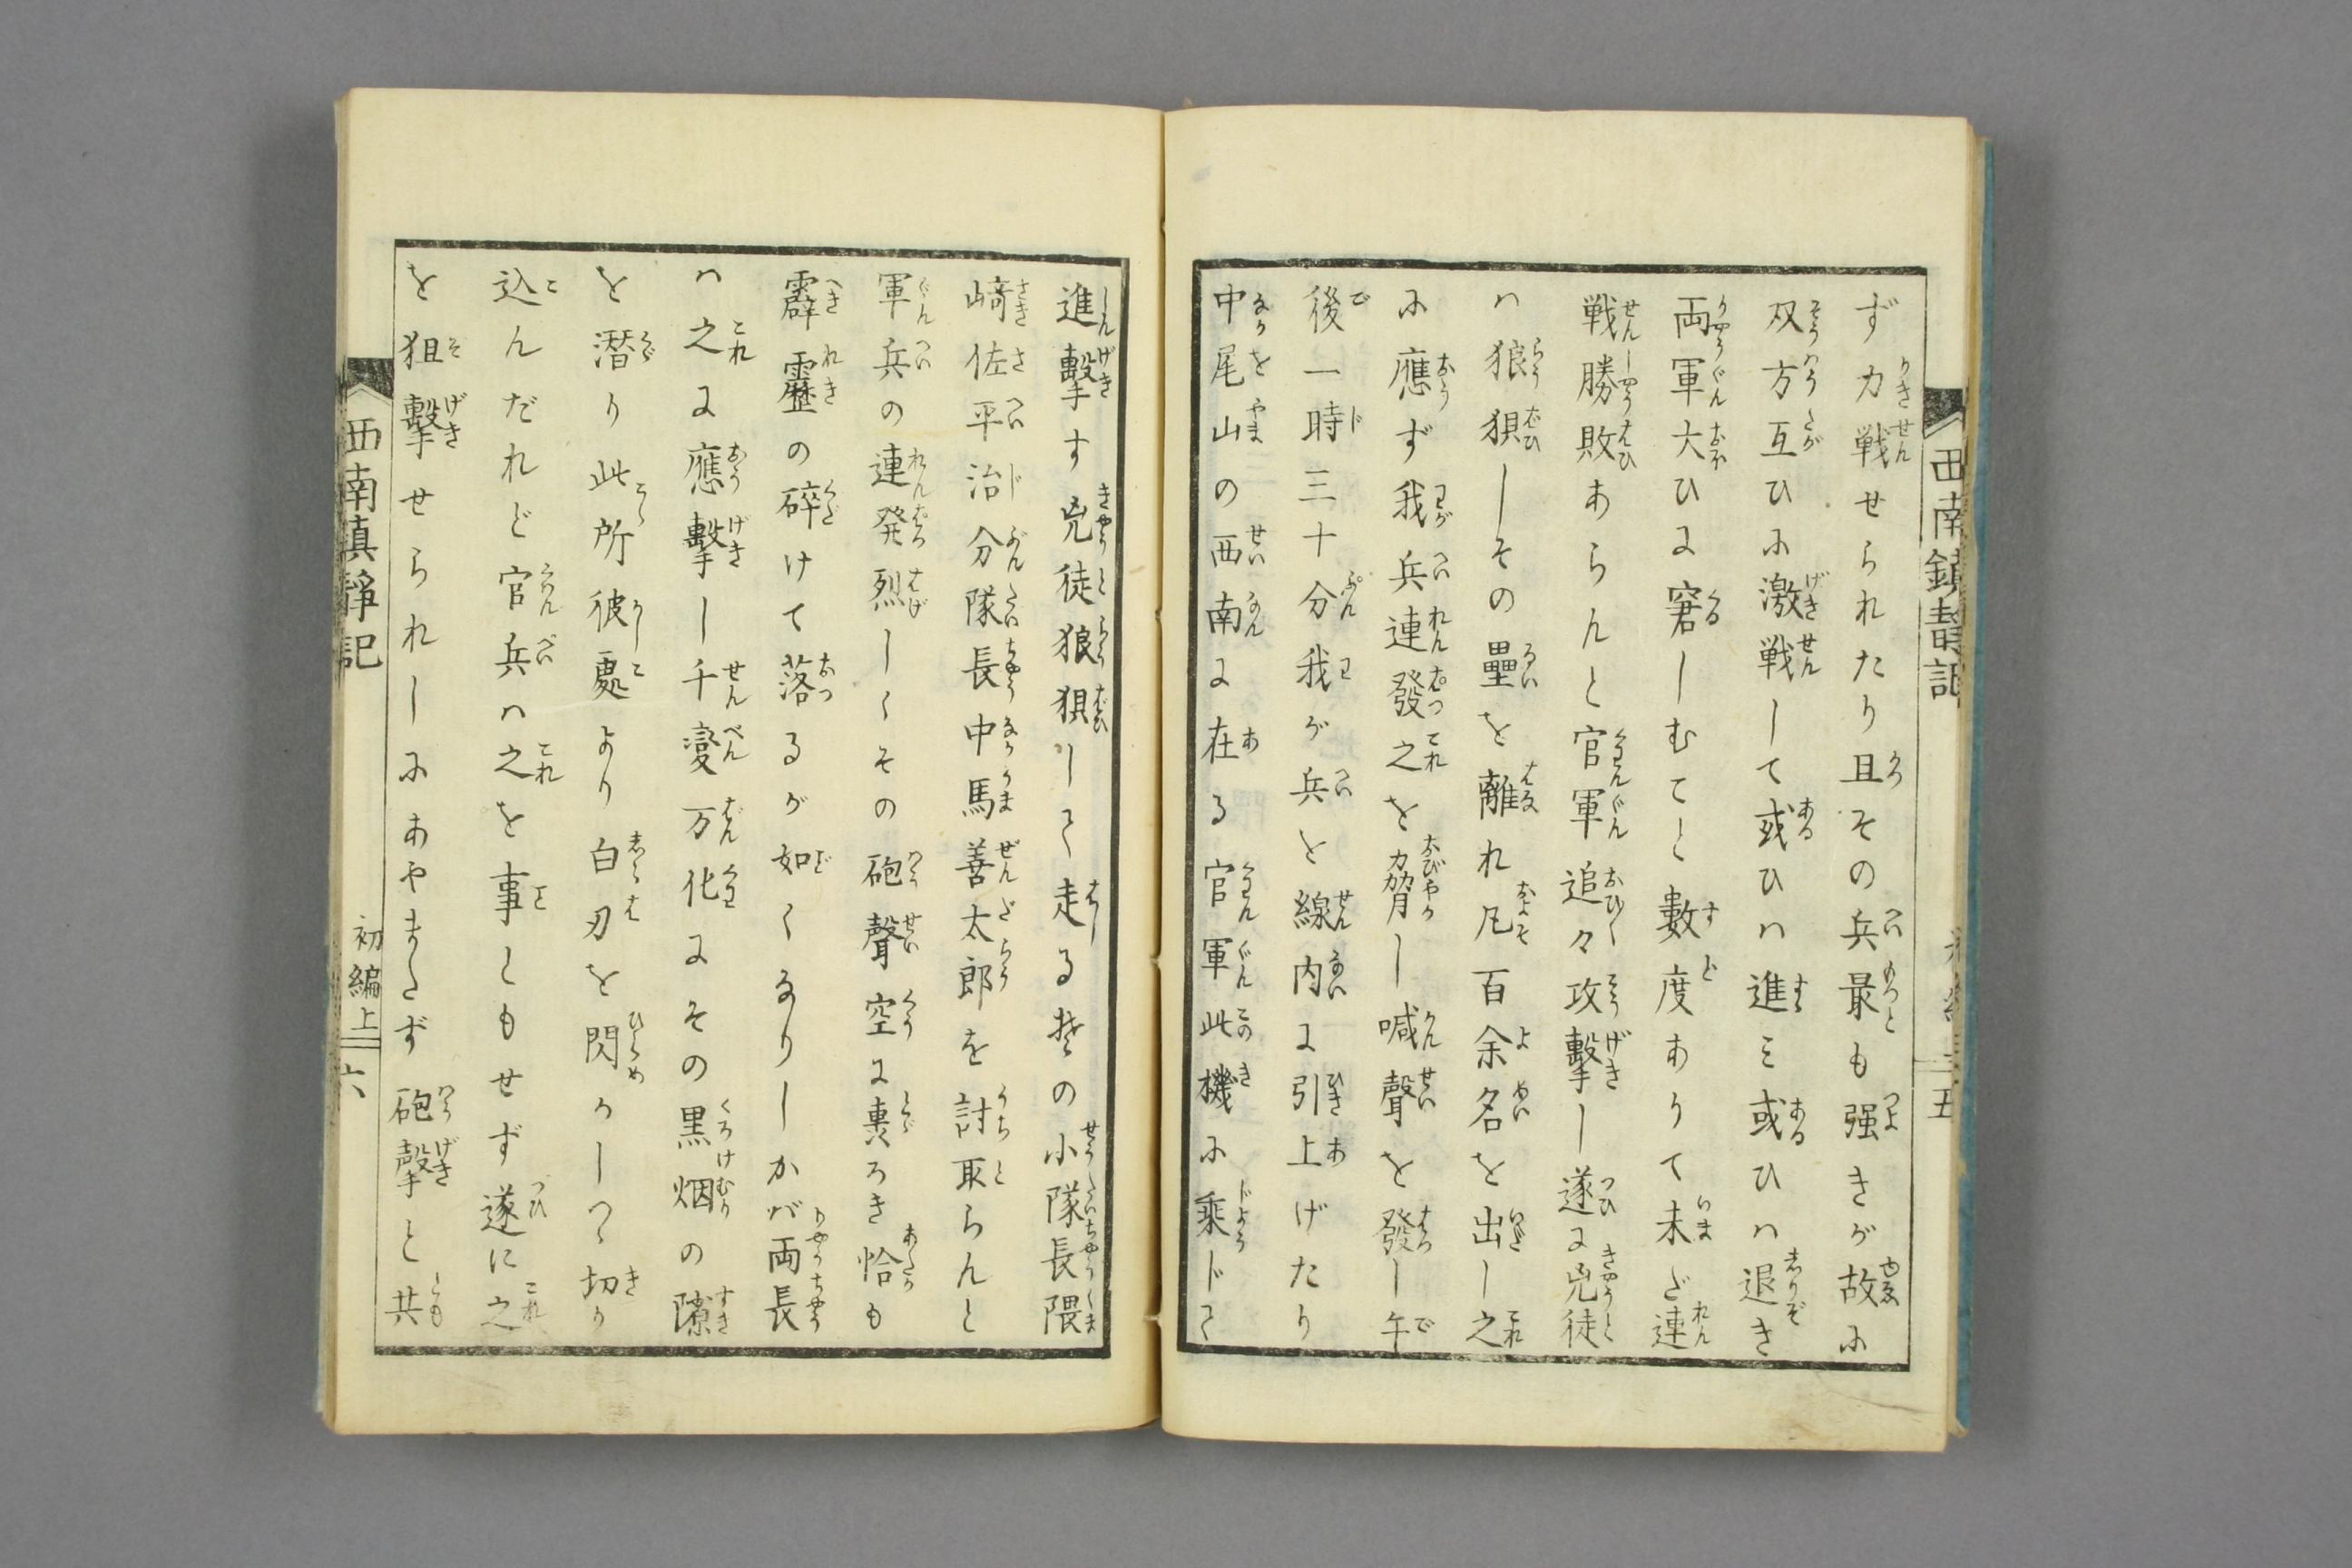 西南鎮静記
五
ず力戦せられたり且その兵最も强きが故に
双方互ひに激戦して或ひハ進ミ或ひハ退き
両軍大ひに窘しむこと數度ありて未ど連
戦勝敗あらんと官軍追々攻擊し遂に兇徒
ハ狼狽しその壘を離れ凡百余名を出し之
に應ず我兵連發之を脅し喊聲を發し午
後一時三十分我が兵を線内に引上げたり
中尾山の西南に在る官軍此機に乘じて
進擊す兇徒狼狽して走る其の小隊長隈
﨑佐平治分隊長中馬善太郎を討取らんと
軍兵の連発烈しくその砲聲空に轟ろき恰も
霹靂の碎けて落るが如くなりしかバ両長
ハ之に應擊し千變万化にその黒烟の隙
を潜り此所彼處より白刃を閃かしつゝ切り
込んだれど官兵ハ之を事ともせず遂に之
を狙擊せられしにあやまたず砲擊と共
西南鎮静記
初編上
六